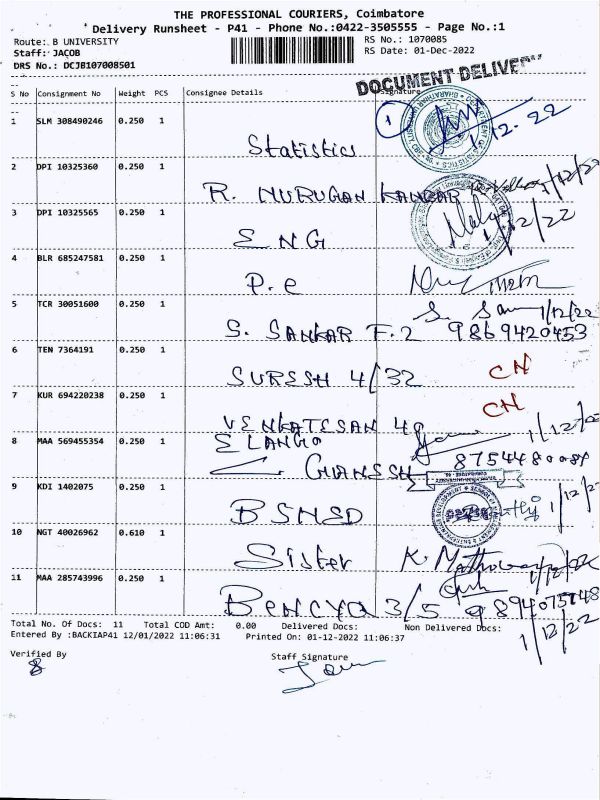 THE PROFESSIONAL COURIERS, Coimbatore
Delivery Runsheet - P41 - Phone No.:0422-3505555 - Page No.:1
Route: B UNIVERSITY RS No.: 1070085
Staff: JACOB RS Date: 01-Dec-2022
DRS No.: DCJB107008501
DOCUMENT DELIVERY
S No Consignment No Weight PCS Consignee Details Signature
1 SLM 308490246 0.250 1 1
Statistics 1-12-22
2 DPI 10325360 0.250 1
R. MURUGAN 1/12/22
3 DPI 10325565 0.250 1
ENG 1/12/22
4 BLR 685247581 0.250 1
P.e
5 TCR 30051600 0.250 1 1/12/22
S. SANKAR F.2 9869420453
6 TEN 7364191 0.250 1 CN
SURESH 4/32
7 KUR 694220238 0.250 1 CN
VENKATESAN 49 1/12/22
8 MAA 569455354 0.250 1 ELANGO
GHANESH
9 KDI 1402075 0.250 1
BSMED
10 NGT 40026962 0.610 1
Sister K. 1/12/22
11 MAA 285743996 0.250 1
3/5
Total No. Of Docs: 11 Total COD Amt: 0.00 Delivered Docs: Non Delivered Docs:
1/12/22
Entered By :BACKIAP41 12/01/2022 11:06:31 Printed On: 01-12-2022 11:06:37
Verified By Staff Signature